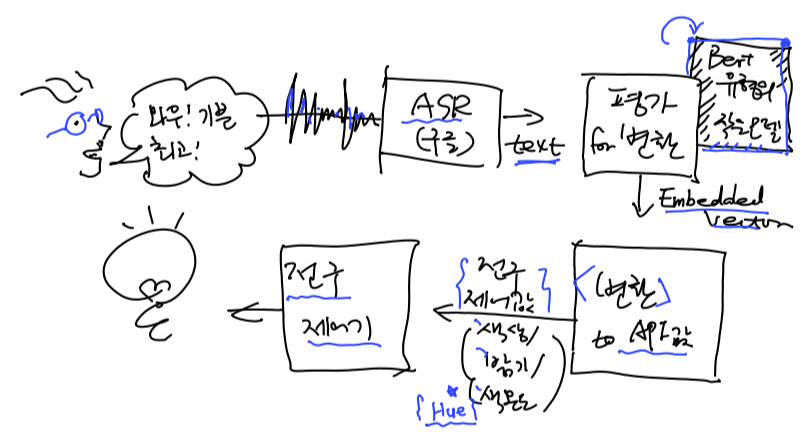 와우! 기쁠
최고!
ASR
(구글)
text
평가
for 변환
Bert
유형의
작은모델
Embedded
Vector
<변환>
to API값
{전구
제어값}
(색상/
밝기/
색온도)
{Hue}
전구
제어기